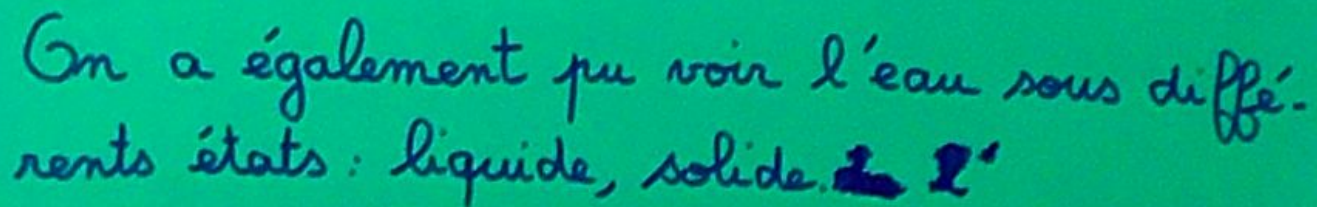 On a également pu voir l'eau sous diffé-
rents états : liquide, solide. L'